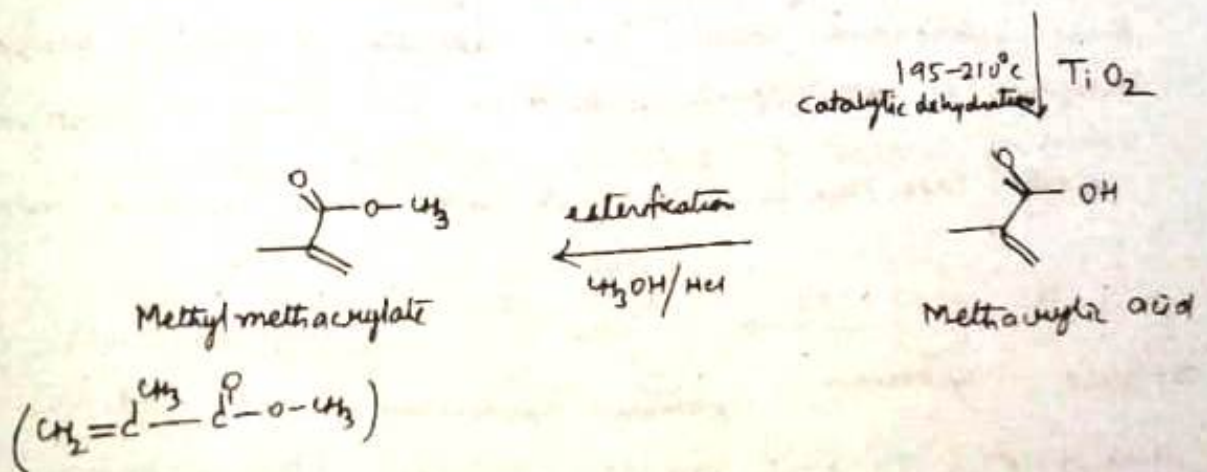 195-210°C TiO2
catalytic dehydration
O
O-CH3
esterification
CH3OH/HCl
O
OH
Methyl methacrylate
Methacrylic acid
(CH2=C(CH3)-C(O)-O-CH3)